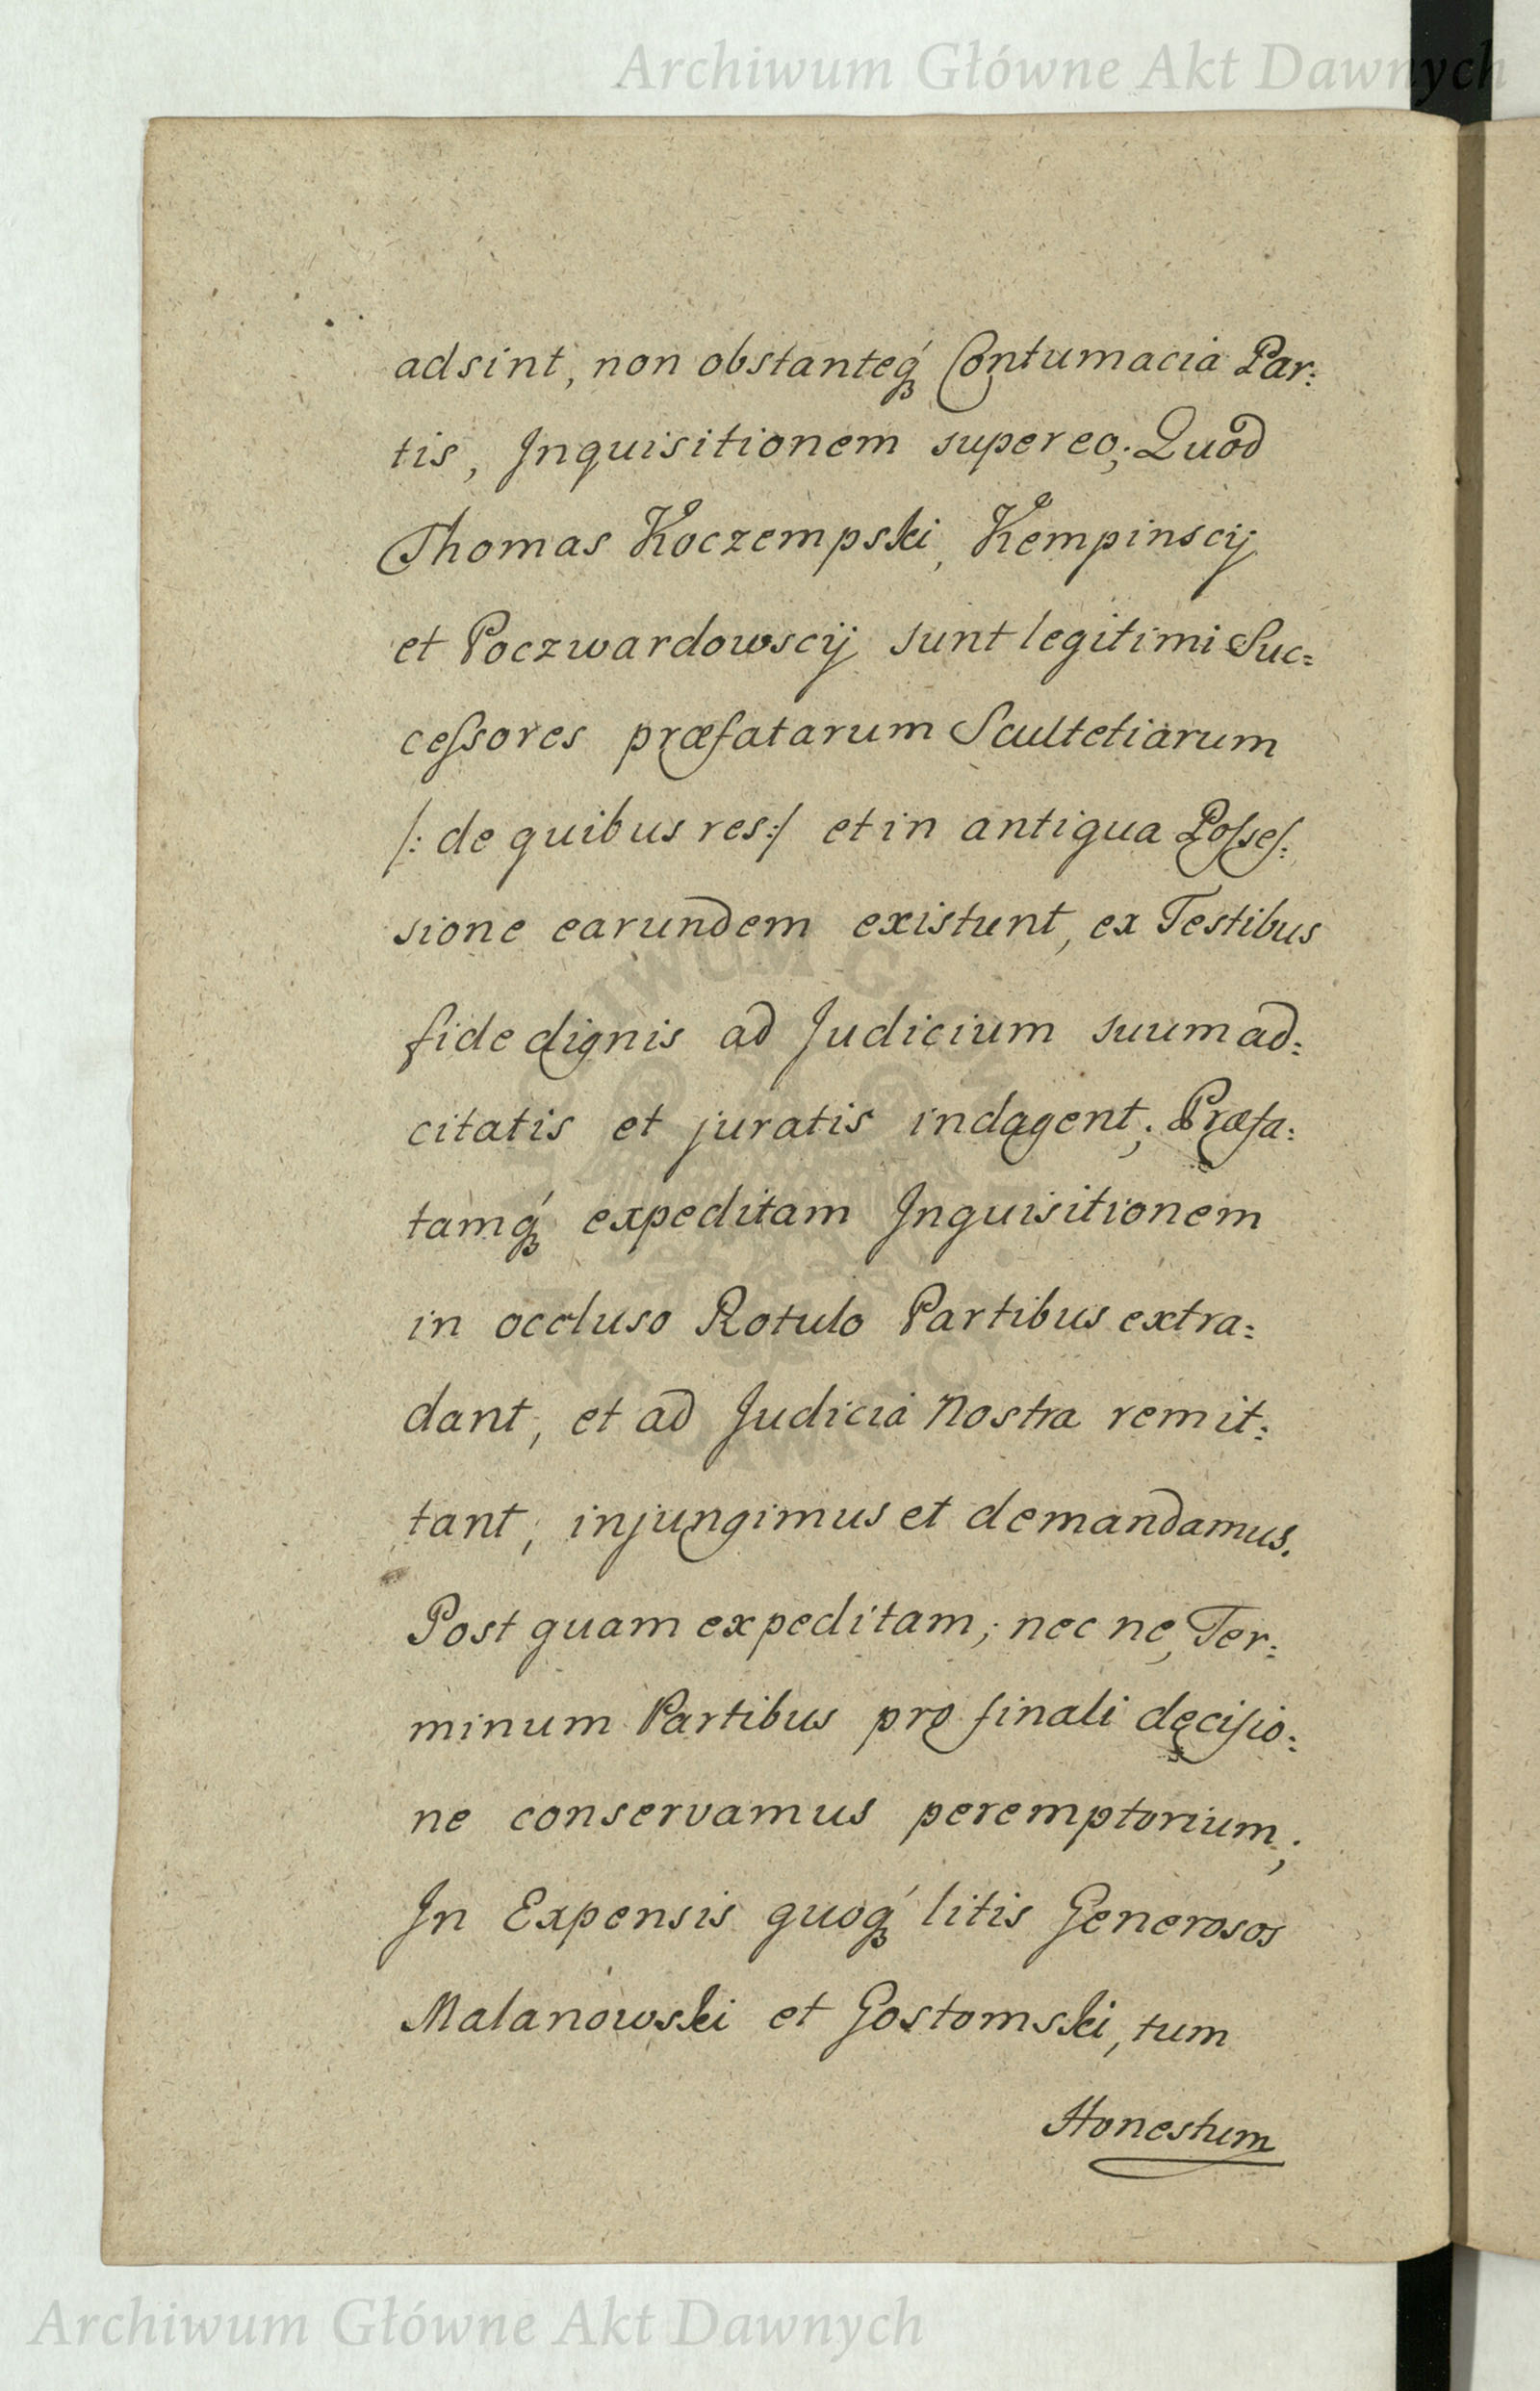 Archiwum Główne Akt Dawnych
adsint, non obstanteq́ Contumacia Par:
tis, Inquisitionem super eo; Quod
Thomas Koczempski, Kempinscij
et Poczwardowscij sunt legitimi Suc=
ceſsores præfatarum Scultetiarum
/: de quibus res :/ et in antiqua Poſseſ:
sione earundem existunt, ex Testibus
fide dignis ad Judicium suum ad:
citatis et juratis indagent; Præfa:
tamq́ expeditam Inquisitionem
in occluso Rotulo Partibus extra:
dant, et ad Judicia Nostra remit:
tant, injungimus et demandamus.
Post quam expeditam; nec ne, Ter:
minum Partibus pro finali deciſio:
ne conservamus peremptorium;
In Expensis quoq́ litis Generosos
Malanowski et Gostomski, tum
Honestum
ARCHIWUM GŁÓWNE AKT DAWNYCH
Archiwum Główne Akt Dawnych